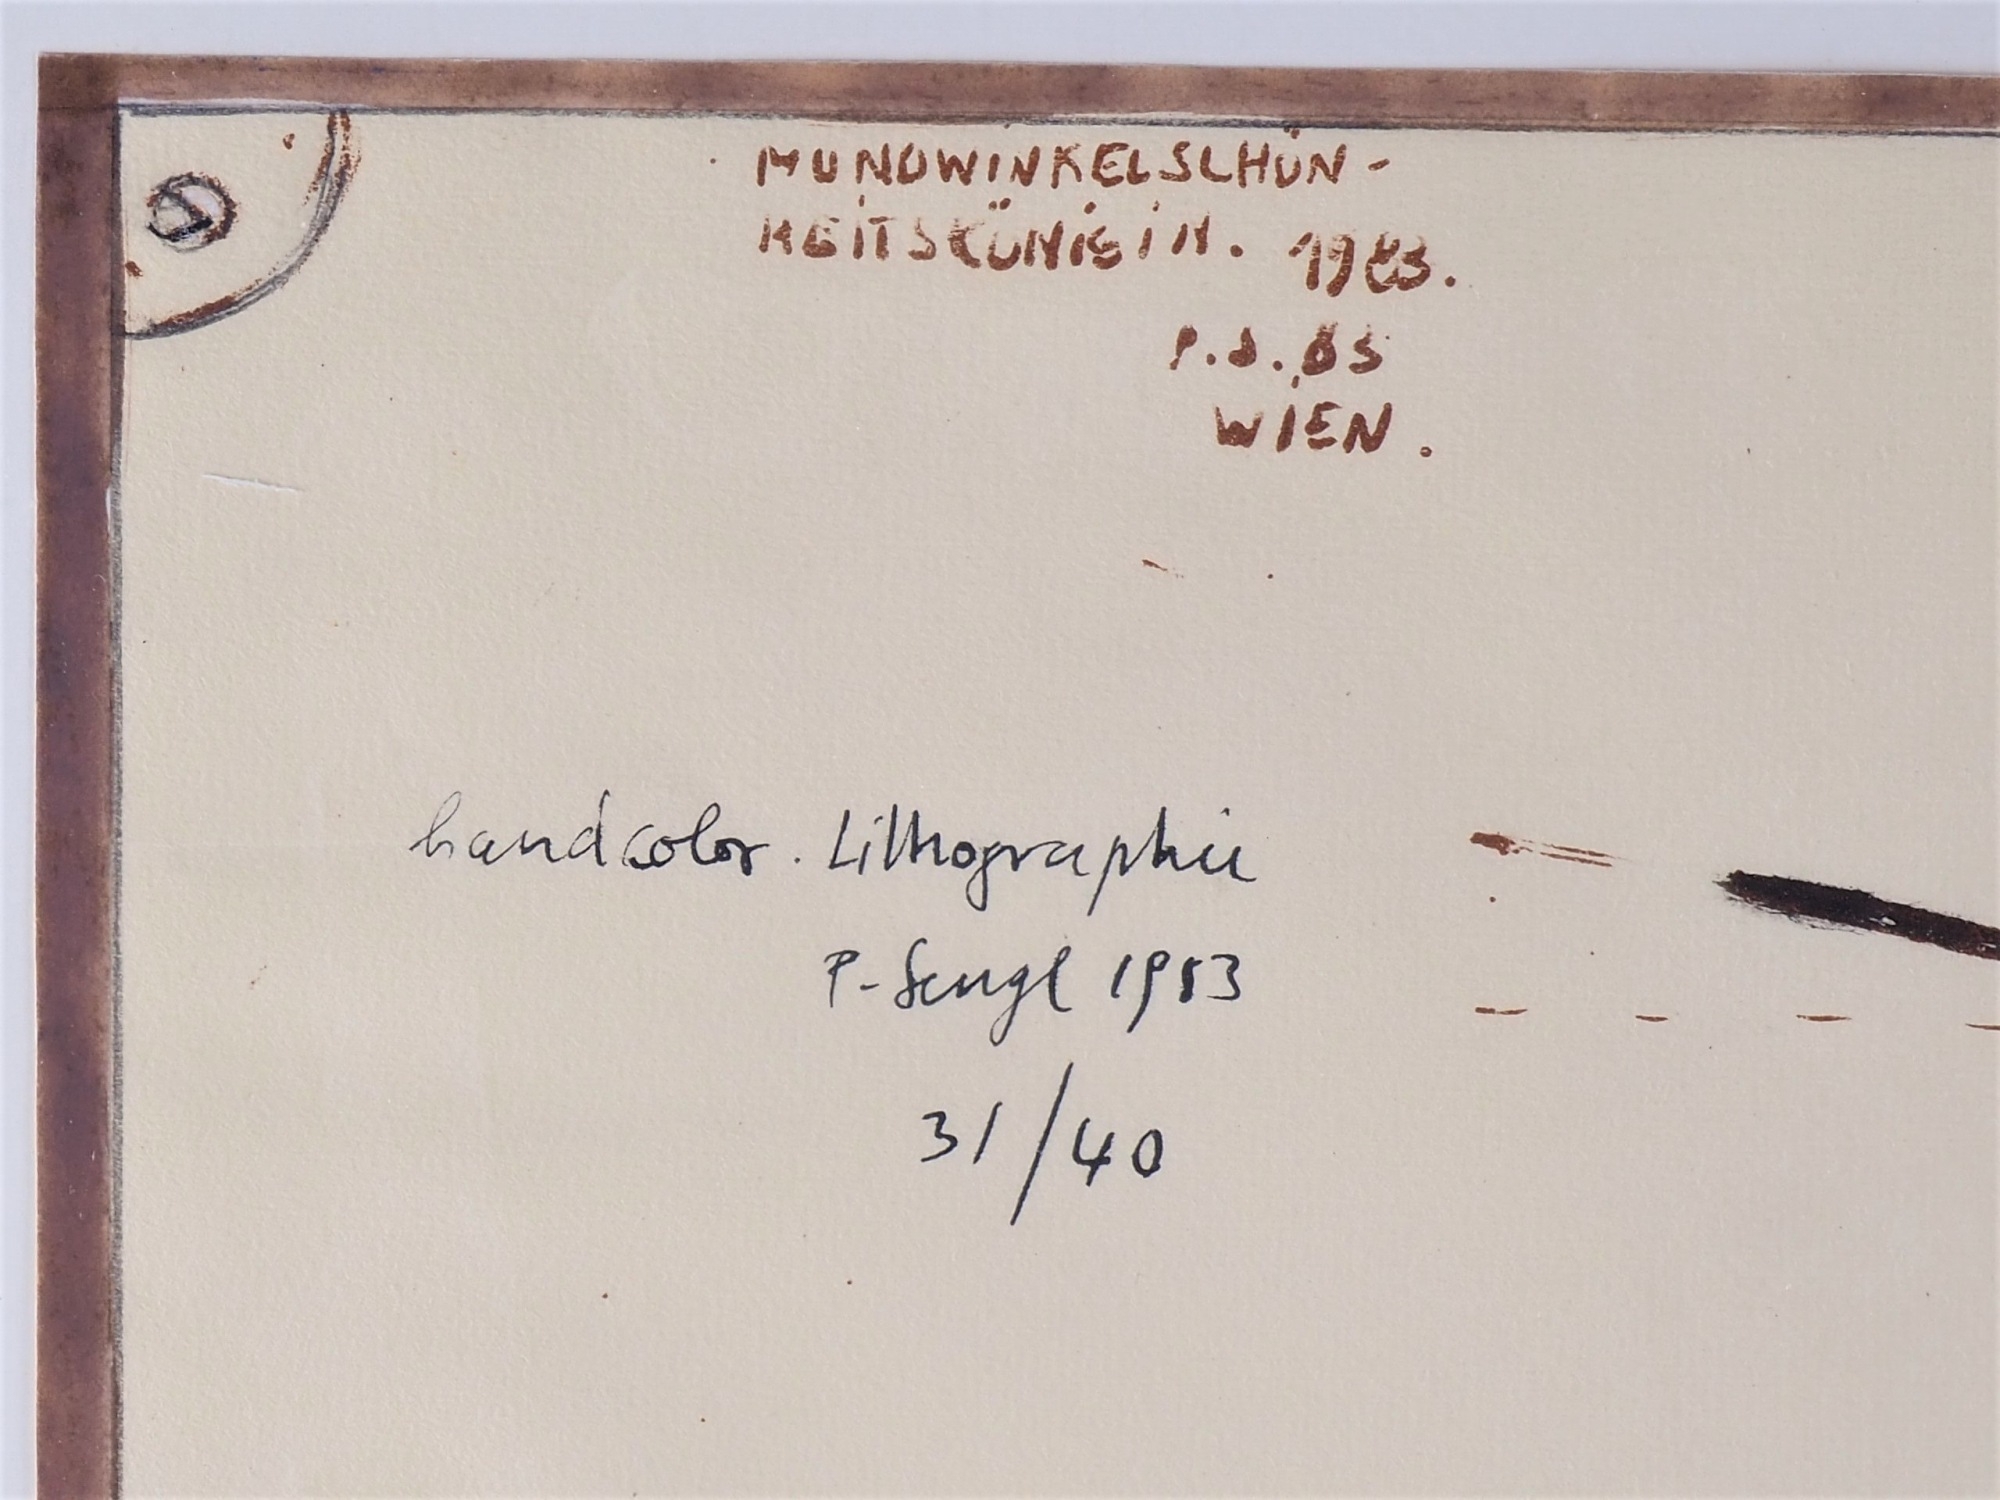 MUNDWINKELSCHÖN-
HEITSKÖNIGIN. 1983.
P.S. 83
WIEN.
handcolor. Lithographie
P. Sengl 1983
31/40